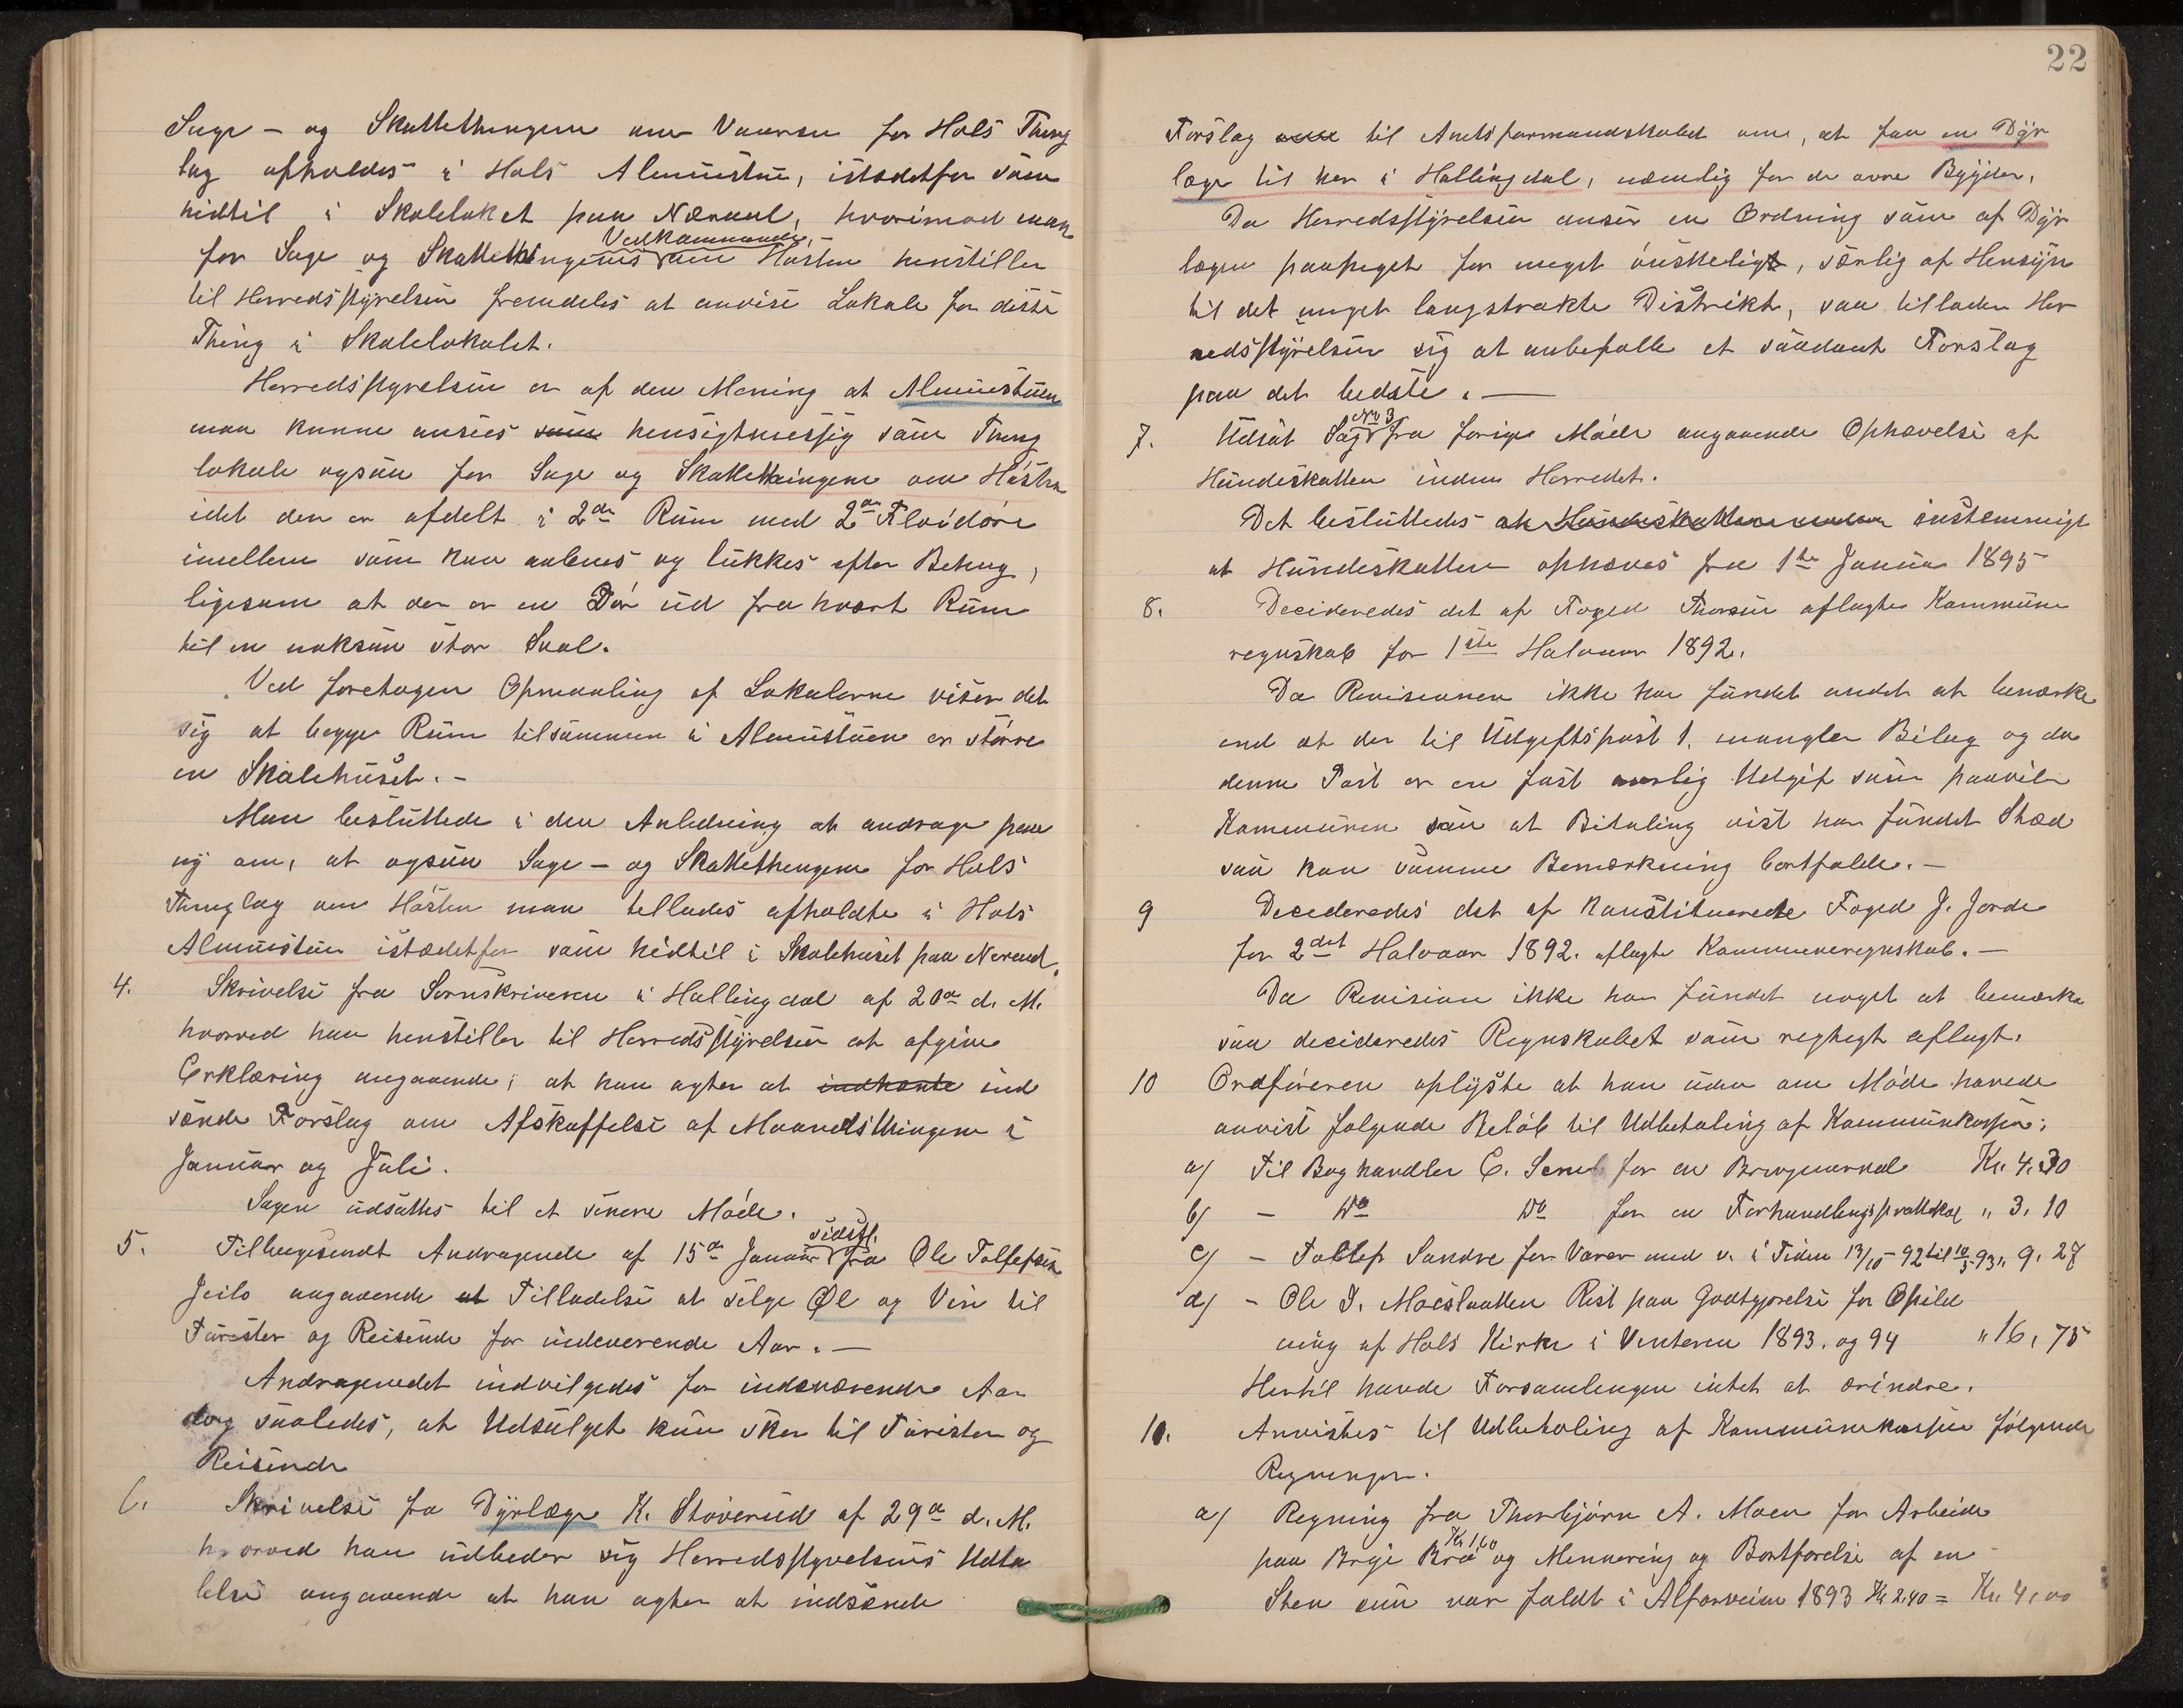 Sage - og Skattethingene om Vaaren for Hols Thing
lag afholdes i Hols Almuestue, istedetfor som
hidtil i Skoleloket paa Neraal, hvorimod man
for Sage og Skattethingenes Vedkommende om Høsten henstiller
til Herredsstyrelsen fremdeles at anvise Lokale for disse
Thing i Skolelokalet.
Herredsstyrelsen er af den Mening at Almuestuen
maa kunne ansees som hensigtmessig som Thing
lokale ogsaa for Sage og Skattethingene om Høsten
idet den er afdelt i 2de Rum med 2de Fløidøre
imellem som kan aabnes og lukkes efter Behag,
ligesom at der er en Dør ud fra hvert Rum
til en noksaa stor Sval.
Ved foretagen Opmaaling af Lokalerne viser det
sig at begge Rum tilsammen i Almuestuen er større
en Skolehuset. -
Man besluttede i den Anledning at andrage paa
ny om, at ogsaa Sage - og Skattethingene for Hols
Thinglag om Høsten maa tillades afholdte i Hols
Almuestue istædetfor som hidtil i Skolehuset paa Neraal.
4. Skrivelse fra Sornskriveren i Hallingdal af 20de d. M.
hvorved han henstiller til Herredsstyrelsen at afgive
Erklæring angaaende, at han agter at indhente ind
sende Forslag om Afskaffelse af Maanedsthingene i
Januar og Juli.
Sagen udsattes til et senere Møde.
5. Tilbagesendt Andragende af 15de Januar sidstl. fra Ole Tollefsen
Jeilo angaaende at Tilladelse at sælge Øl og Vin til
Turister og Reisende for indeverende Aar. -
Andragendet indvilgedes for indeværende Aar
dog saaledes, at Udsalget kun sker til Turister og
Reisende
6. Skrivelse fra Dyrlæge K. Støverud af 29de d. M.
hvorved han udbeder sig Herredsstyrelsens Udta
lelse angaaende at han agter at indsende
22
Forslag til Amtsformandskabet om, at faa en Dyr
læge til her i Hallingdal, nemlig for de øvre Bygder,
Da Herredsstyrelsen anser en Ordning som af Dyr
lægen paapeget for meget ønskeligt, særlig af Hensyn
til det meget langstrakte Distrikt, saa tillader Her
redsstyrelsen sig at anbefalle et saadant Forslag
paa det bedste. -
7. Udsat Sag No 3 fra forige Møde angaaende Ophævelse af
Hundeskatten inden Herredet.
Det besluttedes at Hundeskatten enstemmigt
at Hundeskatten ophæves fra 1ste Januar 1895
8. Decideredes det af Foged Thorsen aflagte Kommune
regnskab for 1ste Halvaar 1892.
Da Revisionen ikke har fundet andet at bemærke
end at der til Udgiftspost 1. mangler Bilag og da
denne Post er en fast aarlig Udgift som paaviler
Kommunen saa at Bitaling vist har fundet Sted
saa kan samme Bemærkning bortfalde. -
9 Decideredes det af konstituerede Foged J. Jorde
for 2det Halvaar 1892. aflagte Kommuneregnskab. -
Da Revision ikke har fundet noget at bemærke
saa decideredes Regnskabet som regtigt aflagt.
10 Ordføreren oplyste at han uden om Møde havde
anvist følgende Beløb til Udbetaling af Kommunekassen:
a) Til Boghandler C. for en Brevjournal Kr. 4.30
b) - Do Do for en Forhandlingsprotokol " 3. 10
c) - Tollef Sandre for Varer med v. i Tiden 13/10 - 92 til 10/5 93 " 9. 27
d) - Ole T. Moeslaatten Rest paa Godtgjørelse for Opild
ning af Hols Kirke i Vinteren 1893. og 94 " 16, 75
Hertil havde Forsamlingen intet at erindre.
10. Anvistes til Udbetaling af Kommunekassen følgende
Regninger.
a) Regning fra Thorbjørn A. Moen for Arbeide
paa Brøie Bro Kr 1,60 og Minnering og Bortførelse af en
Sten som var faldt i Alfarveien 1893 Kr 2.40 = Kr. 4,00